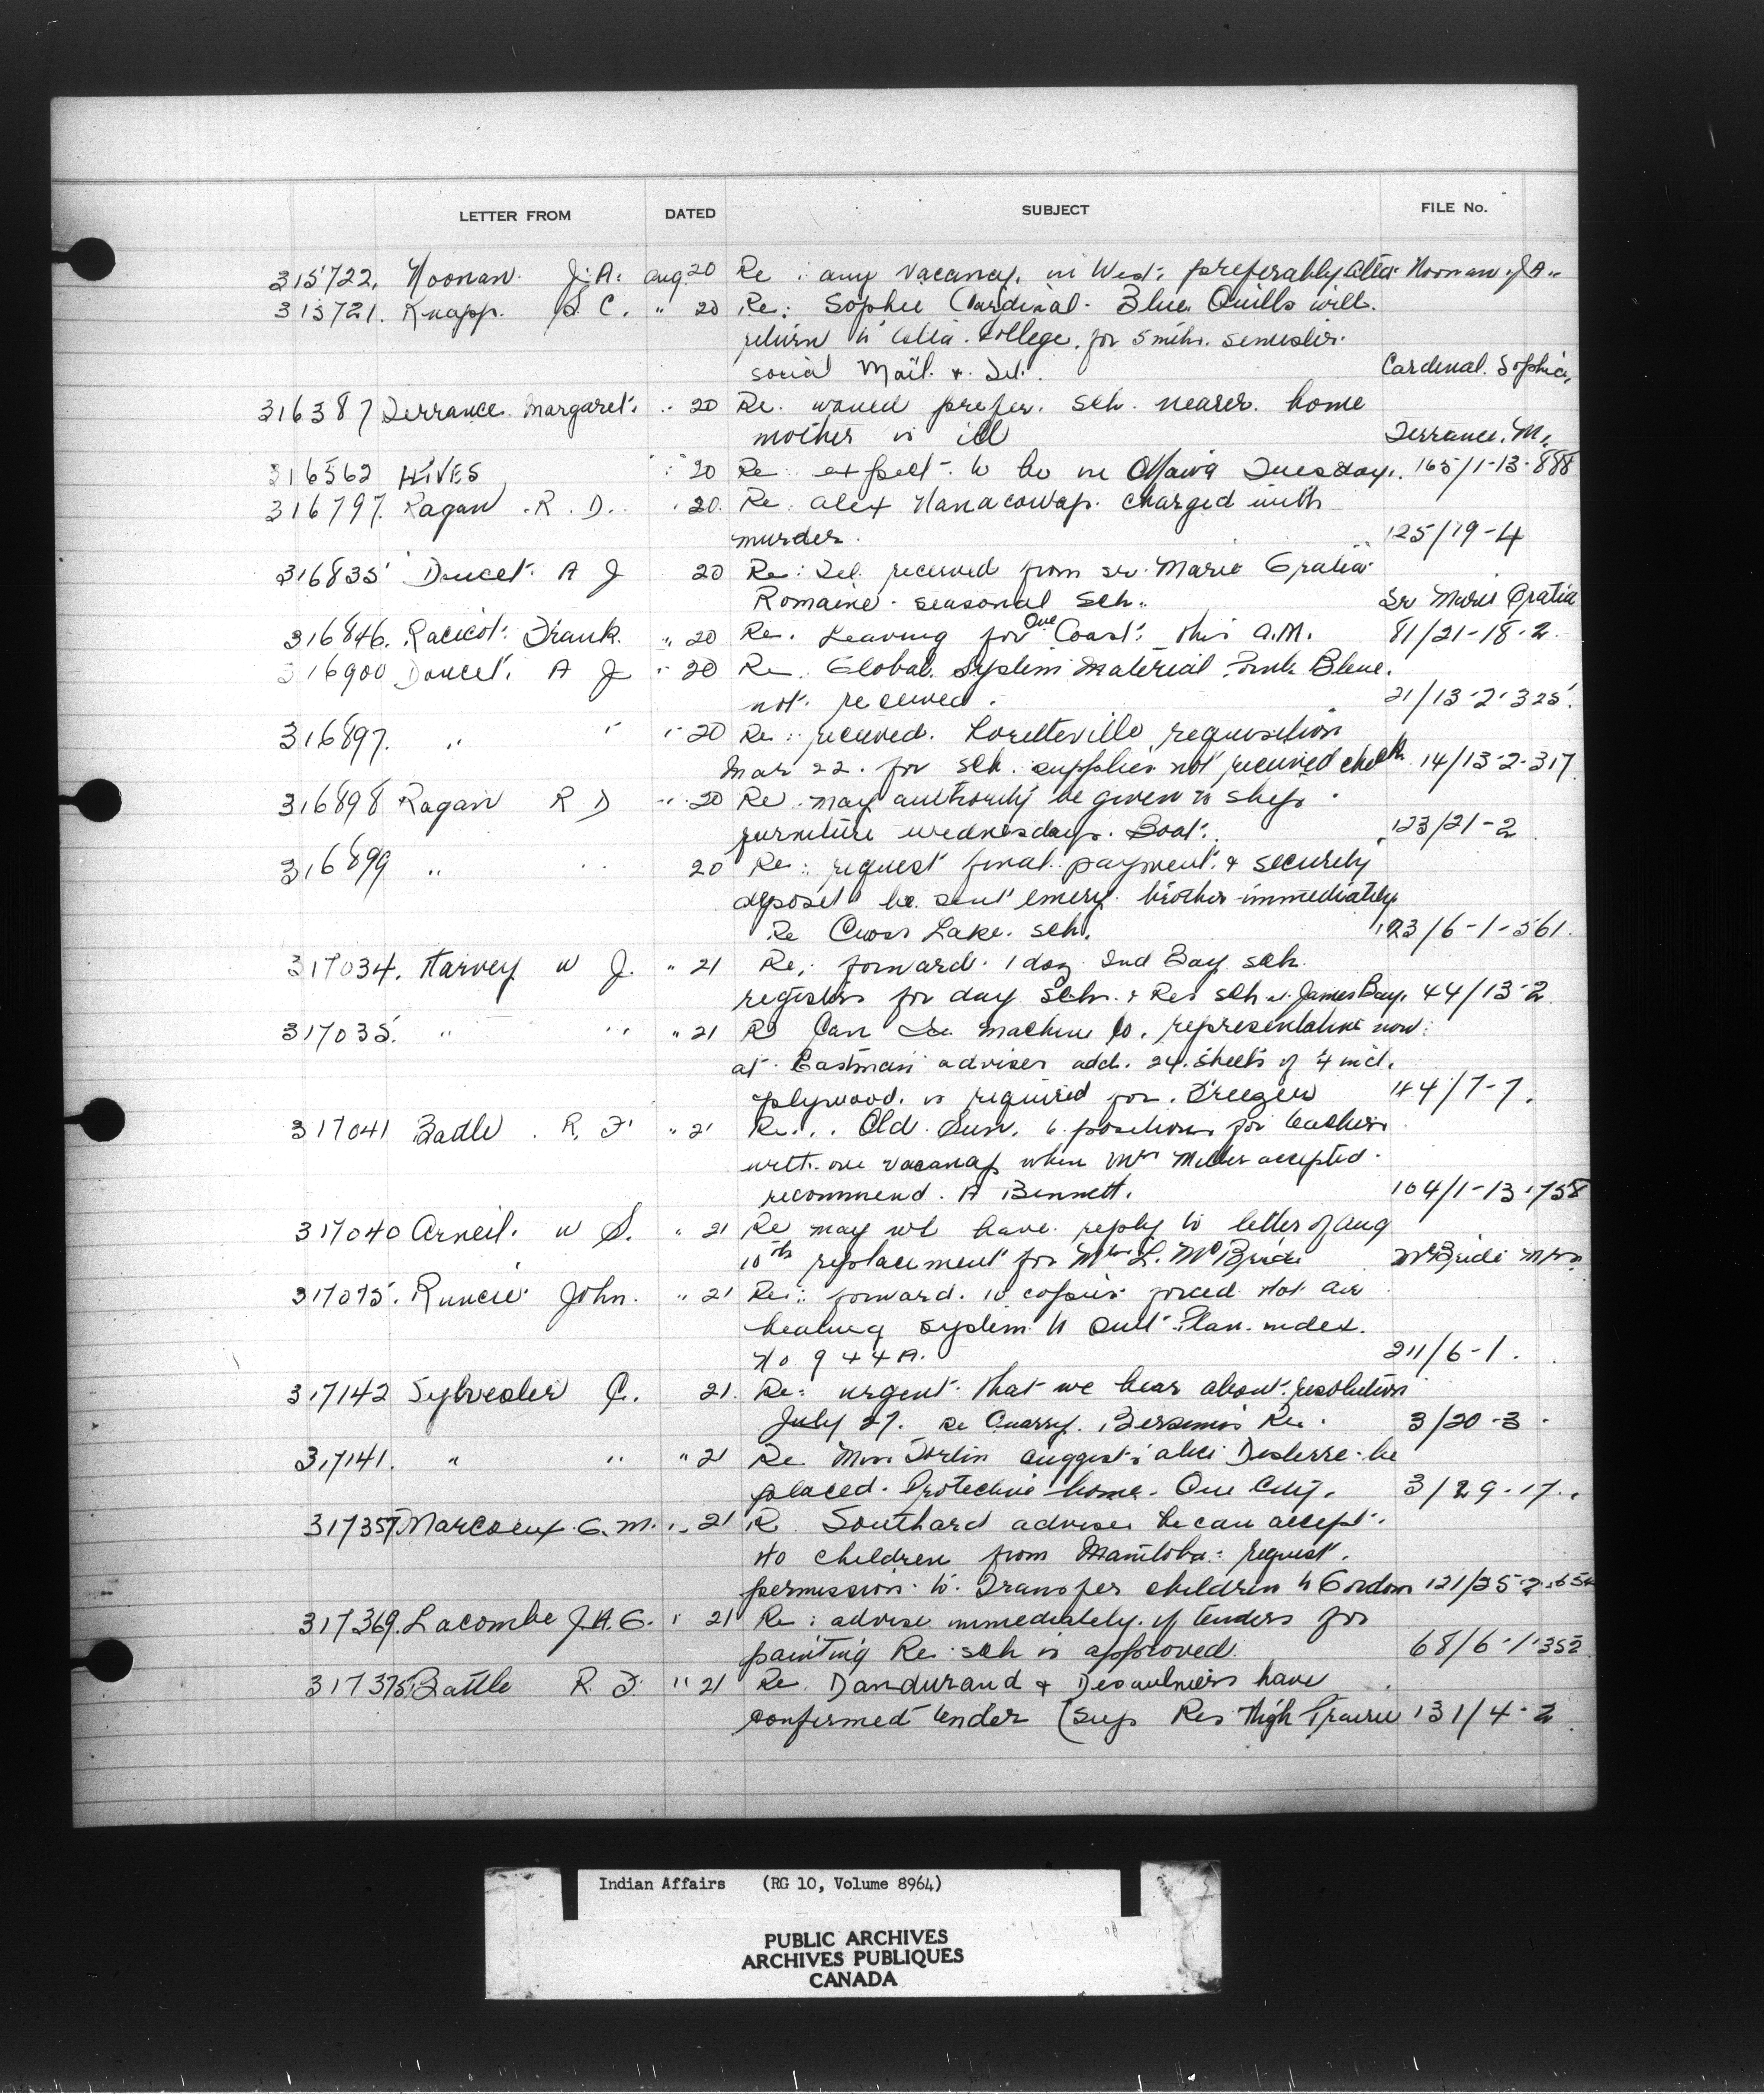 LETTER FROM DATED SUBJECT FILE No.
315722. Noonan. J. A. Aug. 20 Re: any vacancy. in West. preferably Alta. Noonan. J A.
315721. Knapp. S. C. " 20 Re: Sophie Cardinal. Blue Quills will
return to Alta. College. for 5 mths. semester.
social Mail. & Tel. Cardinal. Sophie.
316387 Terrance. Margaret. " 20 Re. would prefer. sch. nearer. home
mother is ill Terrance. M.
316562 HIVES " 20 Re expect to be in Ottawa Tuesday. 165/1-13-888
316797. Ragan R. D. " 20. Re. Alex Nanacowap. charged with
murder. 125/19-4
316835 Doucet. A J 20 Re: Tel. received from Sr. Marie Gratia
Romaine. seasonal Sch. Sr Marie Gratia
316846. Racicot. Frank. " 20 Re. Leaving for Coast. this A.M. 81/21-18-2.
316900 Doucet. A J " 20 Re. Global System Material. Blue.
not. received. 21/13-2-325.
316897. " " " 20 Re: received. Loretteville requisition
Mar 22. for sch. supplies not received 14/13-2-317.
316898 Ragan R D " 20 Re. may authority be given to ship
furniture wednesdays. Boat. 123/21-2
316899 " " 20 Re: request final payment. & security
deposit be sent emery. brothers immediately
Re Cross Lake. sch. 123/6-1-561.
317034. Harvey W J. " 21 Re: forward. 1 doz. Ind Day sch.
registers for day Sch. & Res sch. James Bay. 44/13-2
317035. " " " 21 Re Can Ice Machine Co. representative now
at. Eastmain advises add. 24. sheets of 1/4 inch.
plywood. is required for. Freezer 44/7-7.
317041 Battle. R. F. " 21 Re... Old Sun. 6 positions for teachers
with one vacancy when Mrs Miller accepted.
recommend. A Bennett. 104/1-13-758
317040 Arneil. W S. " 21 Re may we have reply to letter of Aug
10th replacement for Mrs L. McBride McBride Mrs
317075. Runcie John. " 21 Re: forward. 10 copies forced Hot air
heating system Plan. index.
No 944A. 211/6-1.
317142 Sylvester C. 21. Re: urgent. that we hear about. resolution
July 27. re Quarry. Bersimis Res. 3/20-3
317141. " " " 21 Re suggests Alice be
placed. Protective home. Que City. 3/29-17.
317357 Marcoux. G. M. " 21 R. Southard advises he can accept.
No children from Manitoba. request.
permission. to. Transfer children to Gordon 121/25-2-
317369. Lacombe J. A. G. " 21 Re: advise immediately. if tenders for
painting Res. sch is approved. 68/6-1-352
317375. Battle R. F. " 21 Re. Dandurand & Desaulniers have
confirmed tender (Sup Res High Prairie 131/4-2
Indian Affairs (RG 10, Volume 8964)
PUBLIC ARCHIVES
ARCHIVES PUBLIQUES
CANADA